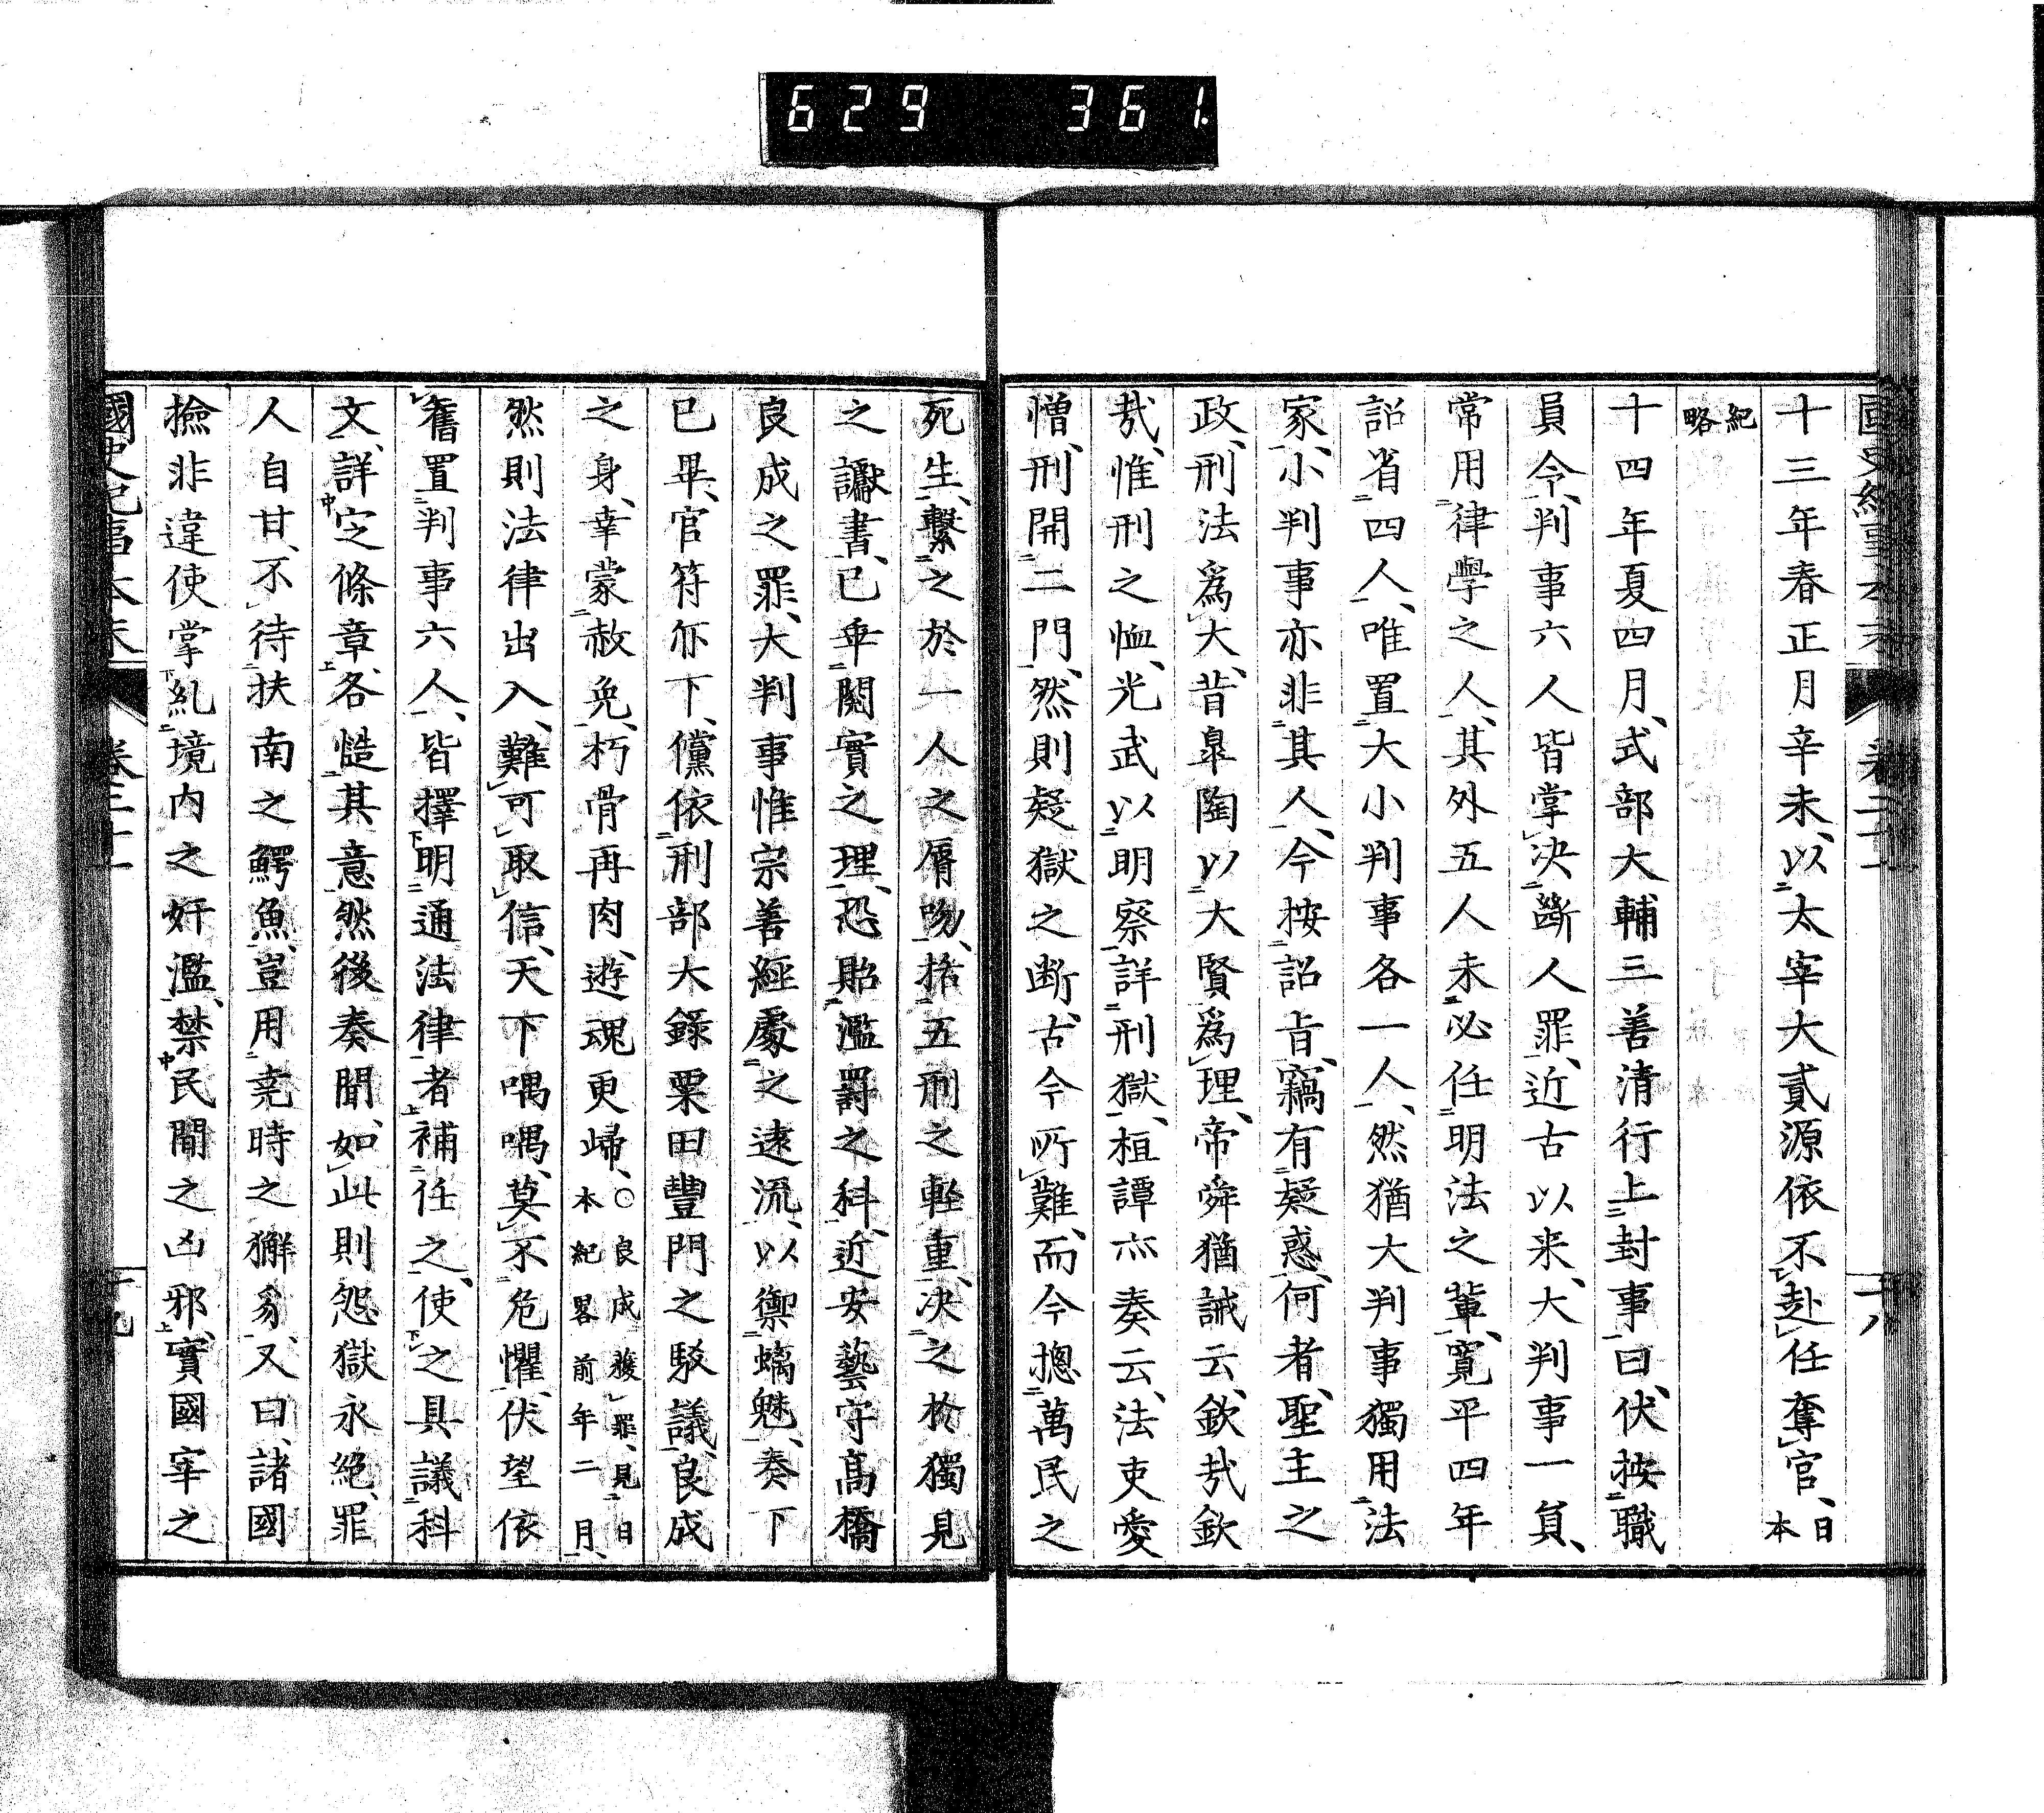 629 361
十三年春正月辛未、以太宰大貳源依不赴任奪官、日本
紀略
十四年夏四月、式部大輔三善清行上封事曰、伏按職
員令、判事六人皆掌決斷人罪、近古以来、大判事一員、
常用律學之人、其外五人未必任明法之輩、寛平四年
詔省四人、唯置大小判事各一人、然猶大判事獨用法
家、小判事亦非其人、今按詔旨、竊有疑惑、何者、聖主之
政、刑法爲大、昔皐陶以大賢爲理、帝舜猶誡云、欽哉欽
哉、惟刑之恤、光武以明察詳刑獄、桓譚亦奏云、法吏愛
憎、刑開二門、然則疑獄之断、古今所難、而今摠萬民之
死生、繫之於一人之脣吻、括五刑之輕重、決之於獨見
之讞書、已乖閱實之理、恐貽濫罸之科、近安藝守髙橋
良成之罪、大判事惟宗善經處之遠流、以禦螭魅、奏下
已畢、官符亦下、儻依刑部大錄粟田豐門之駁議、良成
之身、幸蒙赦免、朽骨再肉、遊魂更歸、○良成獲罪、見日本紀畧前年二月、
然則法律出入、難可取信、天下喁喁、莫不危懼、伏望依
舊置判事六人、皆擇明通法律者補任之、使之具議科
文、詳定條章、各慥其意然後奏聞、如此則怨獄永絕、罪
人自甘、不待扶南之鰐魚、豈用堯時之獬豸、又曰、諸國
撿非違使掌糺境内之奸濫、禁民間之凶邪、實國宰之
國史紀事本末 卷二十一 二十九